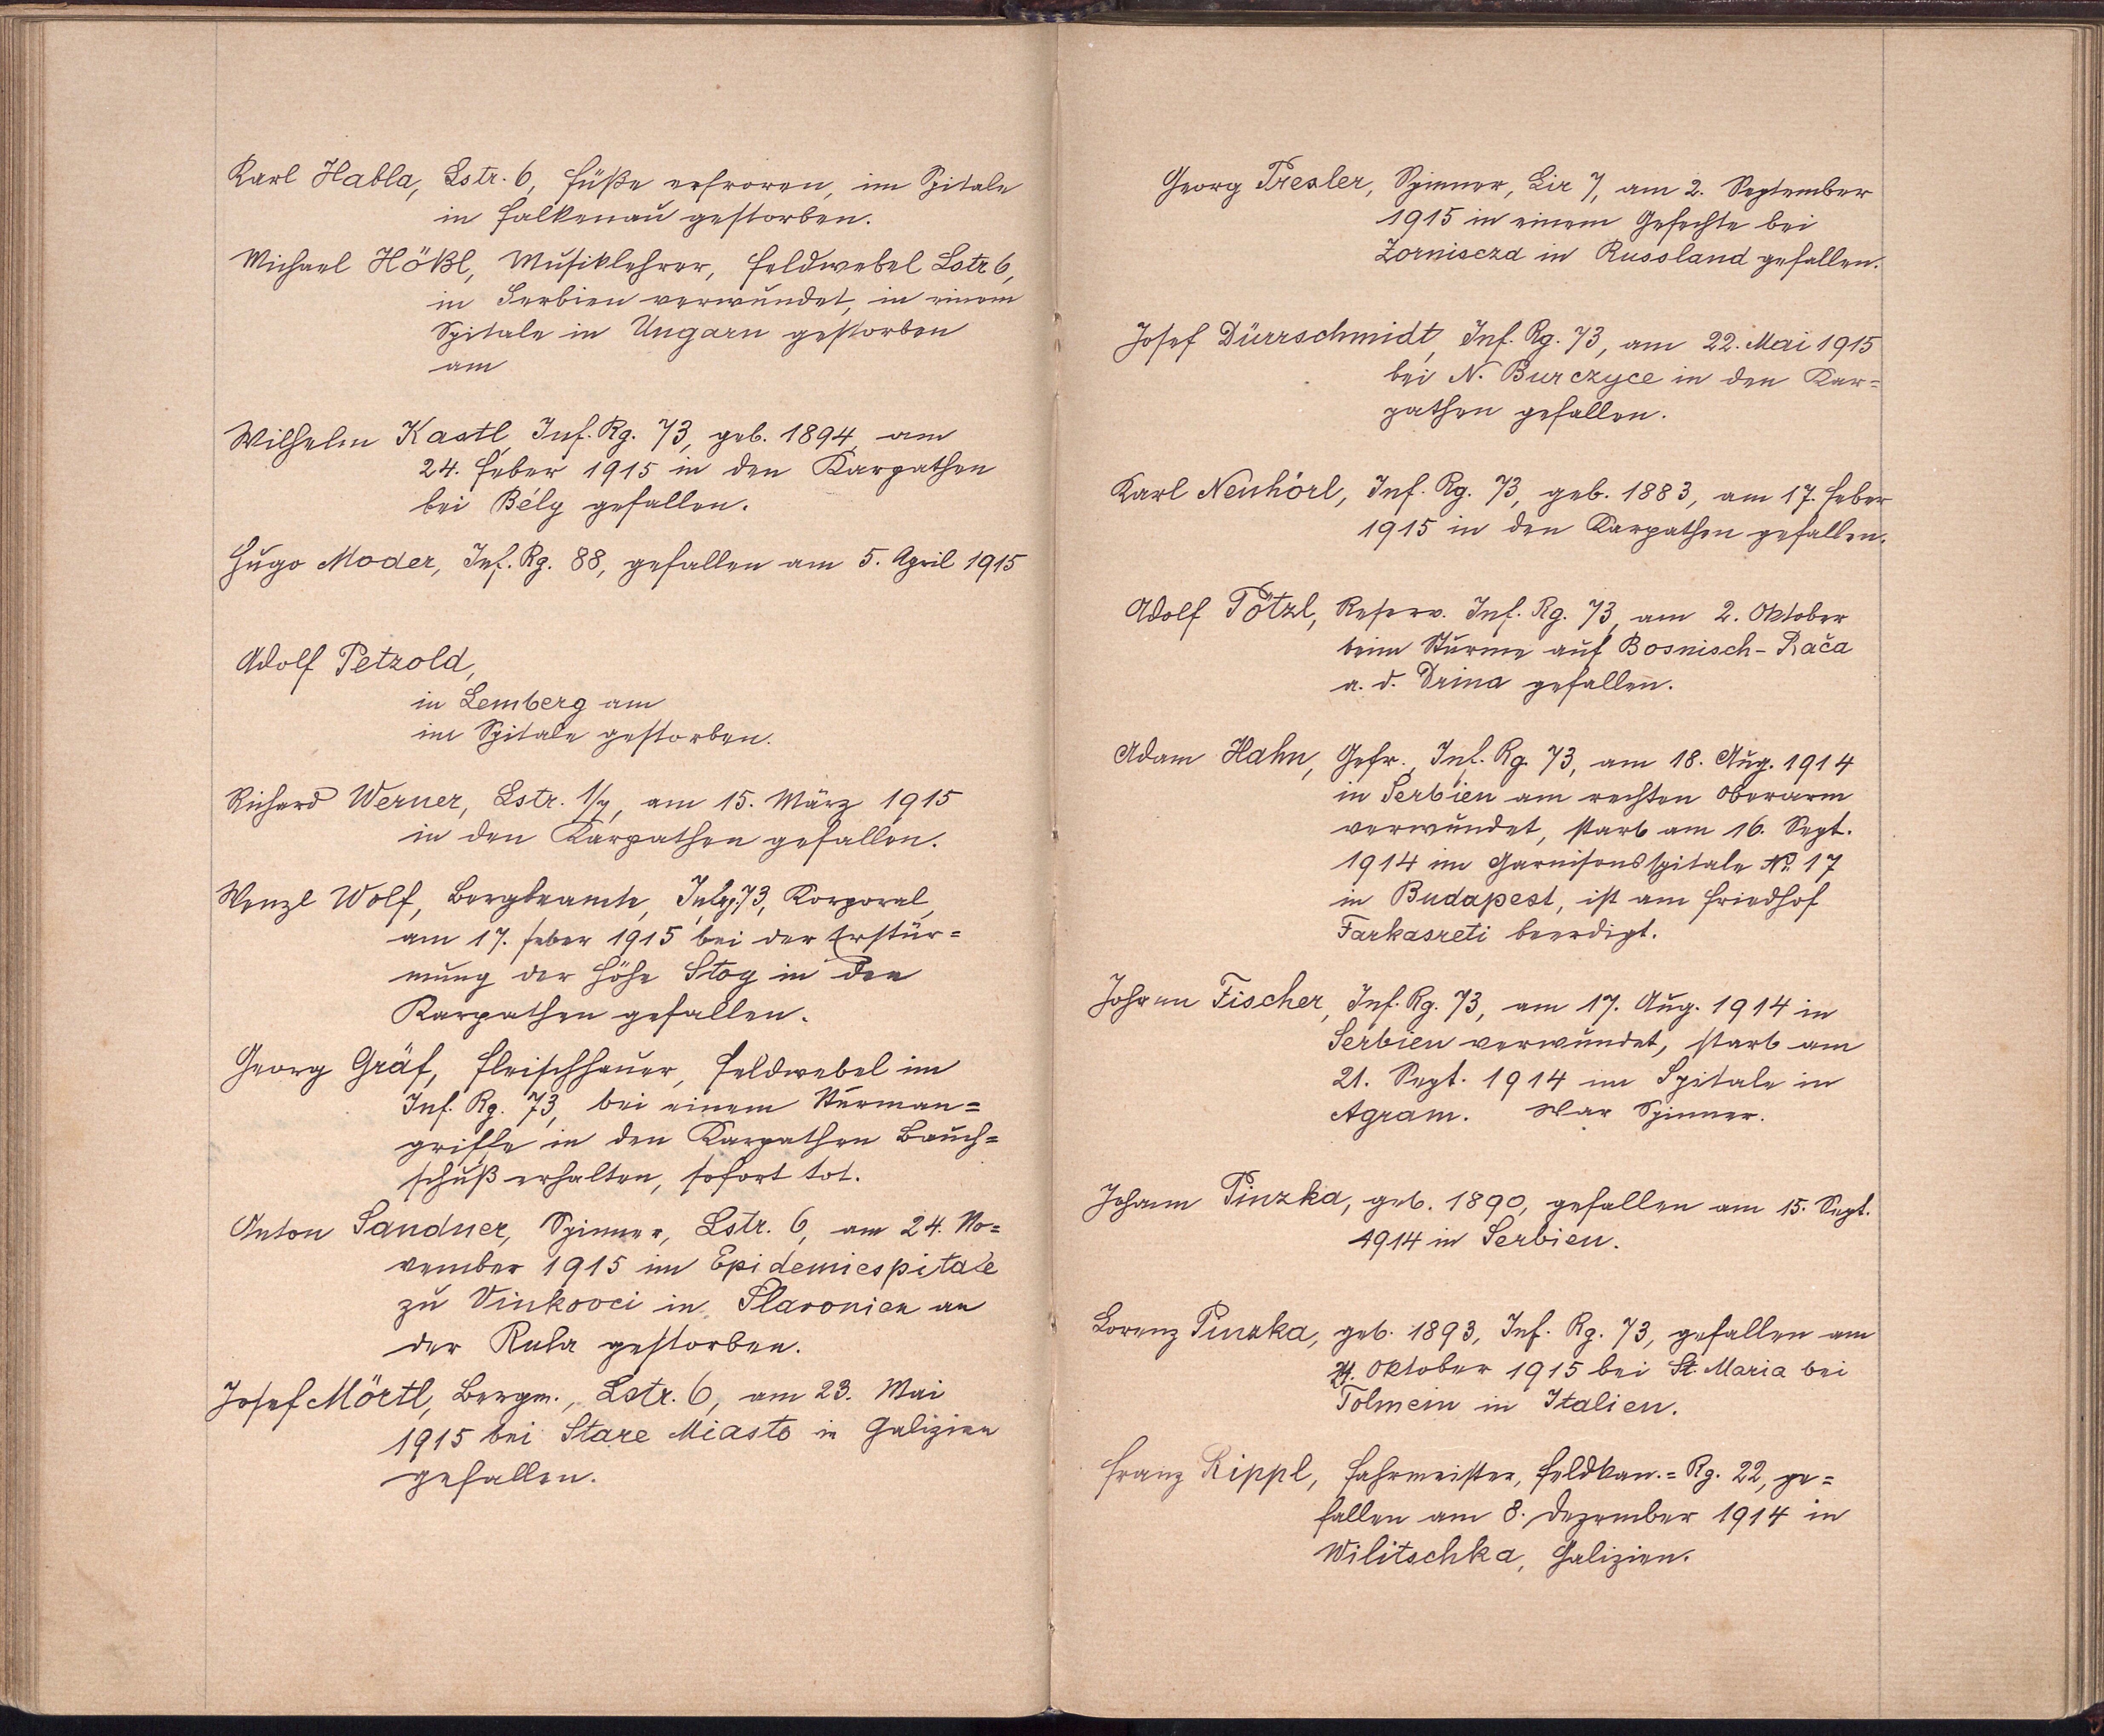 Karl Habla, Lstr. 6, Füße erfroren, im Spitale
in Falkenau gestorben.
Michael Hößl, Musiklehrer, Feldwebel Lstr 6,
in Serbien verwundet, in einem
Spitale in Ungarn gestorben
am
Wilhelm Kastl, Inf. Rg. 73, geb. 1894, am
24. Feber 1915 in den Karpathen
bei Bély gefallen.
Hugo Moder, Inf. Rg. 88, gefallen am 5. April 1915
Adolf Petzold,
in Lemberg am
im Spitale gestorben.
Richard Werner, Lstr. 1/7, am 15. März 1915
in den Karpathen gefallen.
Wenzl Wolf, Bergbeamte, 73, Korporal,
am 17. Feber 1915 bei der Erstür=
mung der Höhe Stog in den
Karpathen gefallen.
Georg Gräf, Fleischhauer, Feldwebel im
Inf. Rg. 73, bei einem Sturman=
griffe in den Karpathen Bauch=
schuß erhalten, sofort tot.
Anton Sandner, Spinner, Lstr. 6, am 24. No=
vember 1915 im Epidemiespitale
zu Vinkovci in Slavonien an
der Ruhr gestorben.
Josef Mörtl, Bergm., Lstr. 6, am 23. Mai
1915 bei Stare Miasto in Galizien
gefallen.
Georg Tresler, Spinner, Lir 7, am 2. September
1915 in einem Gefechte bei
Zornisczd in Russland gefallen.
Josef Dürrschmidt, Inf. Rg. 73, am 22. Mai 1915
bei N. Burczyce in den Kar=
pathen gefallen.
Karl Neuhörl, Inf. Rg. 73, geb. 1883, am 17. Feber
1915 in den Karpathen gefallen.
Adolf Pötzl, Reserv. Inf. Rg. 73, am 2. Oktober
beim Sturme auf Bosnisch-Rača
a. d. Drina gefallen.
Adam Hahn, Gefr., Inf. Rg. 73, am 18. Aug. 1914
in Serbien am rechten Oberarm
verwundet, starb am 16. Sept.
1914 im Garnisonsspitale No. 17
in Budapest, ist am Friedhof
Farkasreti beerdigt.
Johann Fischer, Inf. Rg. 73, am 17. Aug. 1914 in
Serbien verwundet, starb am
21. Sept. 1914 im Spitale in
Agram. War Spinner.
Johann Pinzka, geb. 1890, gefallen am 15. Sept.
1914 in Serbien.
Lorenz Pinzka, geb. 1893, Inf. Rg. 73, gefallen am
Oktober 1915 bei St. Maria bei
Tolmein in Italien.
Franz Rippl, Fahrmeister, Feldkan.=Rg. 22, ge=
fallen am 8. Dezember 1914 in
Wilitschka, Galizien.